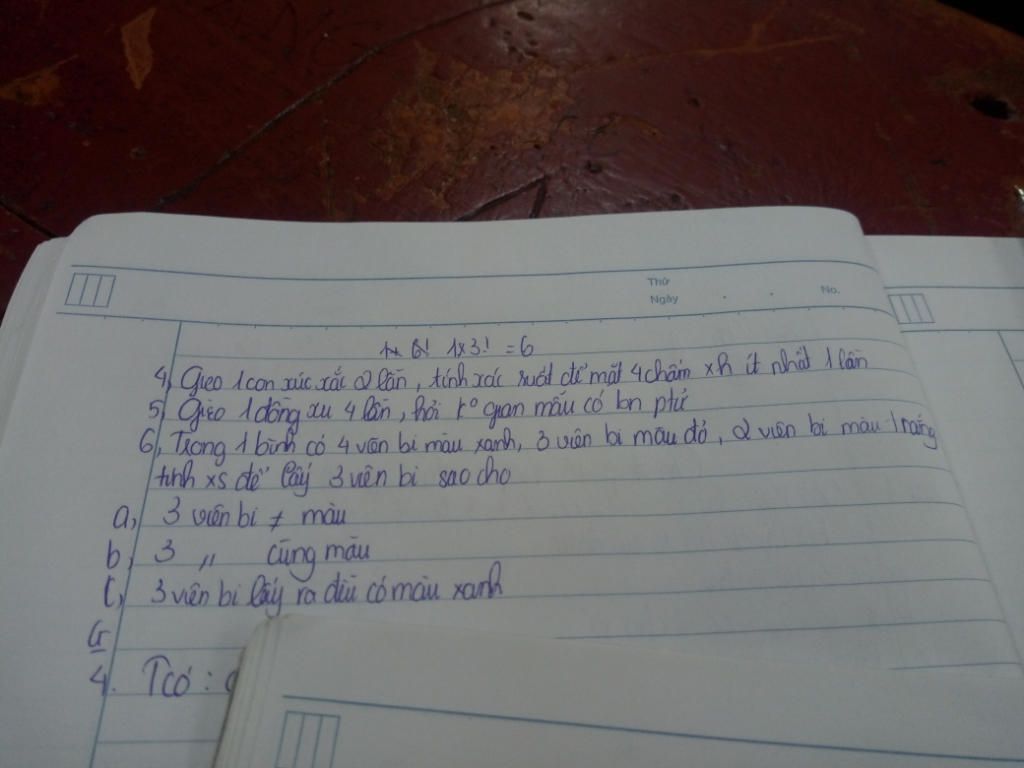 Thứ
Ngày . . No.
6! 1x3! = 6
4, Gieo 1 con xúc xắc 2 lần, tính xác suất để mặt 4 chấm xh ít nhất 1 lần
5, Gieo 1 đồng xu 4 lần, hỏi k° gian mẫu có bn ptử
6, Trong 1 bình có 4 viên bi màu xanh, 3 viên bi màu đỏ, 2 viên bi màu trắng
tính xs để lấy 3 viên bi sao cho
a, 3 viên bi ≠ màu
b, 3 ,, cùng màu
c, 3 viên bi lấy ra đều có màu xanh
G
4. Tcó :